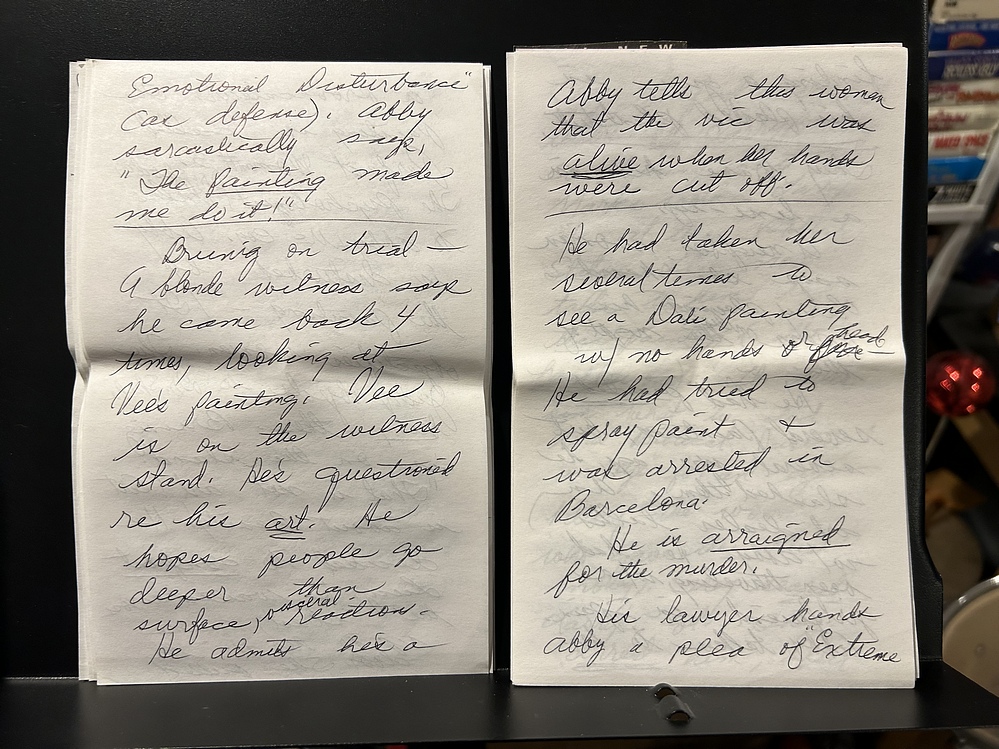 Emotional Disturbance"
(as defense). Abby
sarcastically says,
"The Painting made
me do it!"
Brunig on trial —
A blonde witness says
he came back 4
times, looking at
Vee's painting. Vee
is on the witness
stand. He's questioned
re his art. He
hopes people go
deeper than
surface, visceral reaction.
He admits he's a
N E W
Abby tells this woman
that the vic was
alive when her hands
were cut off.
He had taken her
several times to
see a Dali painting
w/ no hands or head
He had tried to
spray paint &
was arrested in
Barcelona.
He is arraigned
for the murder.
His lawyer hands
Abby a plea of "Extreme